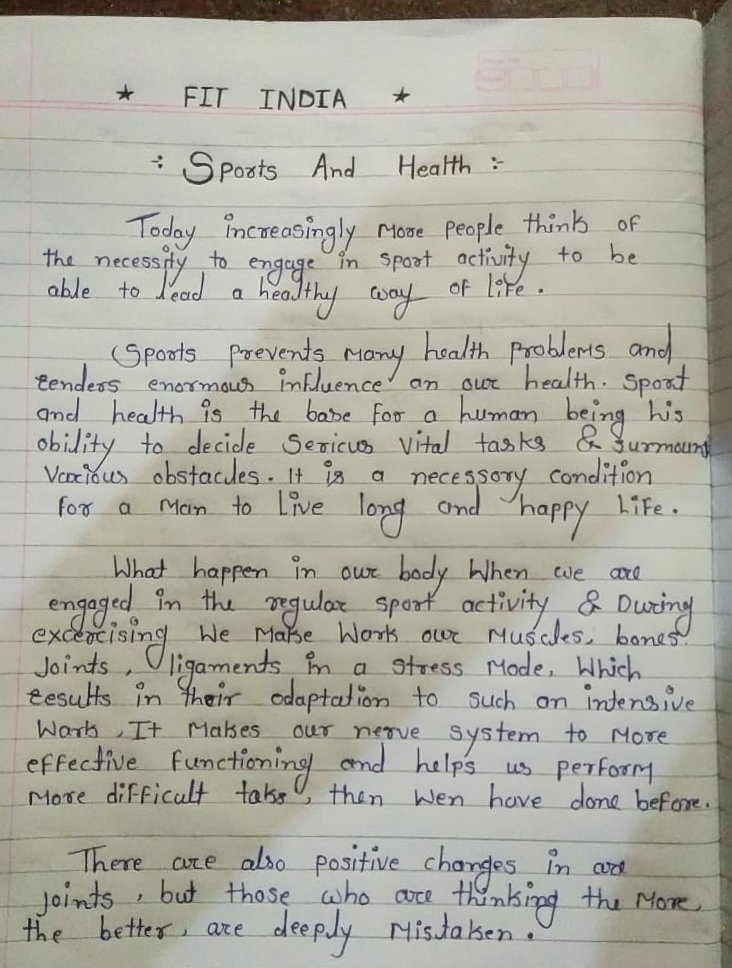 ★ FIT INDIA ★
÷ Sports And Health :-
Today increasingly more people think of
the necessity to engage in sport activity to be
able to lead a healthy way of life.
Sports prevents many health problems and
tenders enormous influence an our health. Sport
and health is the base for a human being his
obility to decide sericus vital tasks & surmount
various obstacles. It is a necessory condition
for a man to live long and happy life.
What happen in our body when we are
engaged in the regular sport activity & During
excercising we make work our muscles, bones.
Joints, ligaments in a stress mode, which
results in their adaptation to such on intensive
work, It makes our nerve system to more
effective functioning and helps us perform
more difficult taks, then wen have done before.
There are also positive changes in are
joints, but those who are thinking the more,
the better, are deeply mistaken.